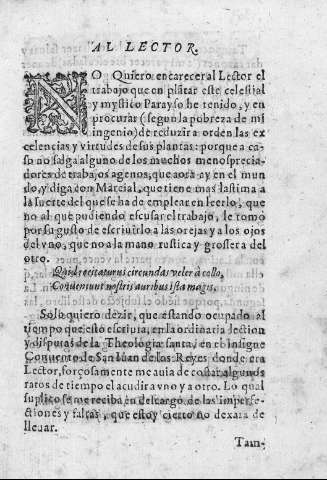 AL LECTOR.
NO Quiero encarecer al Lector el
trabajo que en plãtar este celestial
y mystico Parayso he tenido, y en
procurar (segun la pobreza de mi
ingenio) de reduzir a orden las ex
celencias y virtudes de sus plantas: porque a ca-
so no salga alguno de los muchos menosprecia-
dores de trabajos agenos, que aora ay en el mun
do, y diga con Marcial, que tiene mas lastima a
la suerte del que se ha de emplear en leerlo, que
no al que pudiendo escusar el trabajo, le tomò
por su gusto de escriuirlo a las orejas y a los ojos
del vno, que no a la mano rustica y grossera del
otro.
Quid recitaturus circundas veler a collo,
Conueniunt nostris auribus ista magis.
Solo quiero dezir, que estando ocupado al
tiempo que esto escriuia, en la ordinaria lection
y disputas de la Theologia santa, en el insigne
Conuento de San Iúan de los Reyes donde era
Lector, forçosamente me auia de costar algunos
ratos de tiempo el acudir a vno y a otro. Lo qual
suplico se me reciba en descargo de las imperfe-
ctiones y faltas, que estoy cierto no dexarà de
lleuar.
Tam-